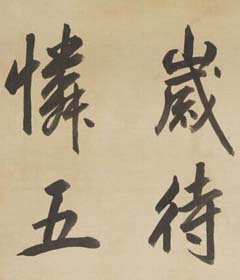 歲待
憐五